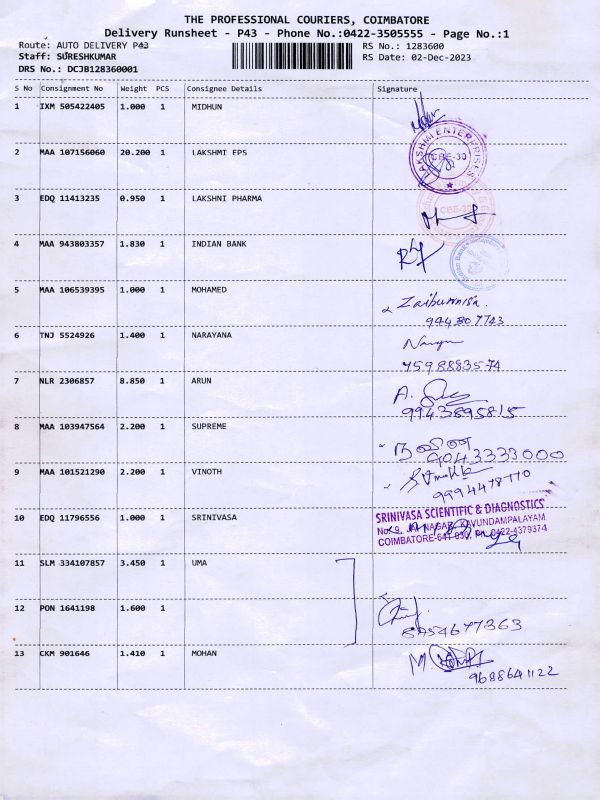 THE PROFESSIONAL COURIERS, COIMBATORE
Delivery Runsheet - P43 - Phone No.:0422-3505555 - Page No.:1
Route: AUTO DELIVERY P43 RS No.: 1283600
Staff: SURESHKUMAR RS Date: 02-Dec-2023
DRS No.: DCJB128360001
S No Consignment No Weight PCS Consignee Details Signature
1 IXM 505422405 1.000 1 MIDHUN
LAKSHMI ENTERPRISES
CBE-30
2 MAA 107156060 20.200 1 LAKSHMI EPS
3 EDQ 11413235 0.950 1 LAKSHNI PHARMA
CBE-30
4 MAA 943803357 1.830 1 INDIAN BANK
5 MAA 106539395 1.000 1 MOHAMED Zaibunnisa
944307743
6 TNJ 5524926 1.400 1 NARAYANA
7598883574
7 NLR 2306857 8.850 1 ARUN A.
9943895815
8 MAA 103947564 2.200 1 SUPREME நவீன்
9043333000
9 MAA 101521290 2.200 1 VINOTH
9994478770
10 EDQ 11796556 1.000 1 SRINIVASA SRINIVASA SCIENTIFIC & DIAGNOSTICS
No: 9, JAI NAGAR, KAVUNDAMPALAYAM
COIMBATORE-641 030. PH: 0422-4379374
11 SLM 334107857 3.450 1 UMA
12 PON 1641198 1.600 1
8754677363
13 CKM 901646 1.410 1 MOHAN
9688641122